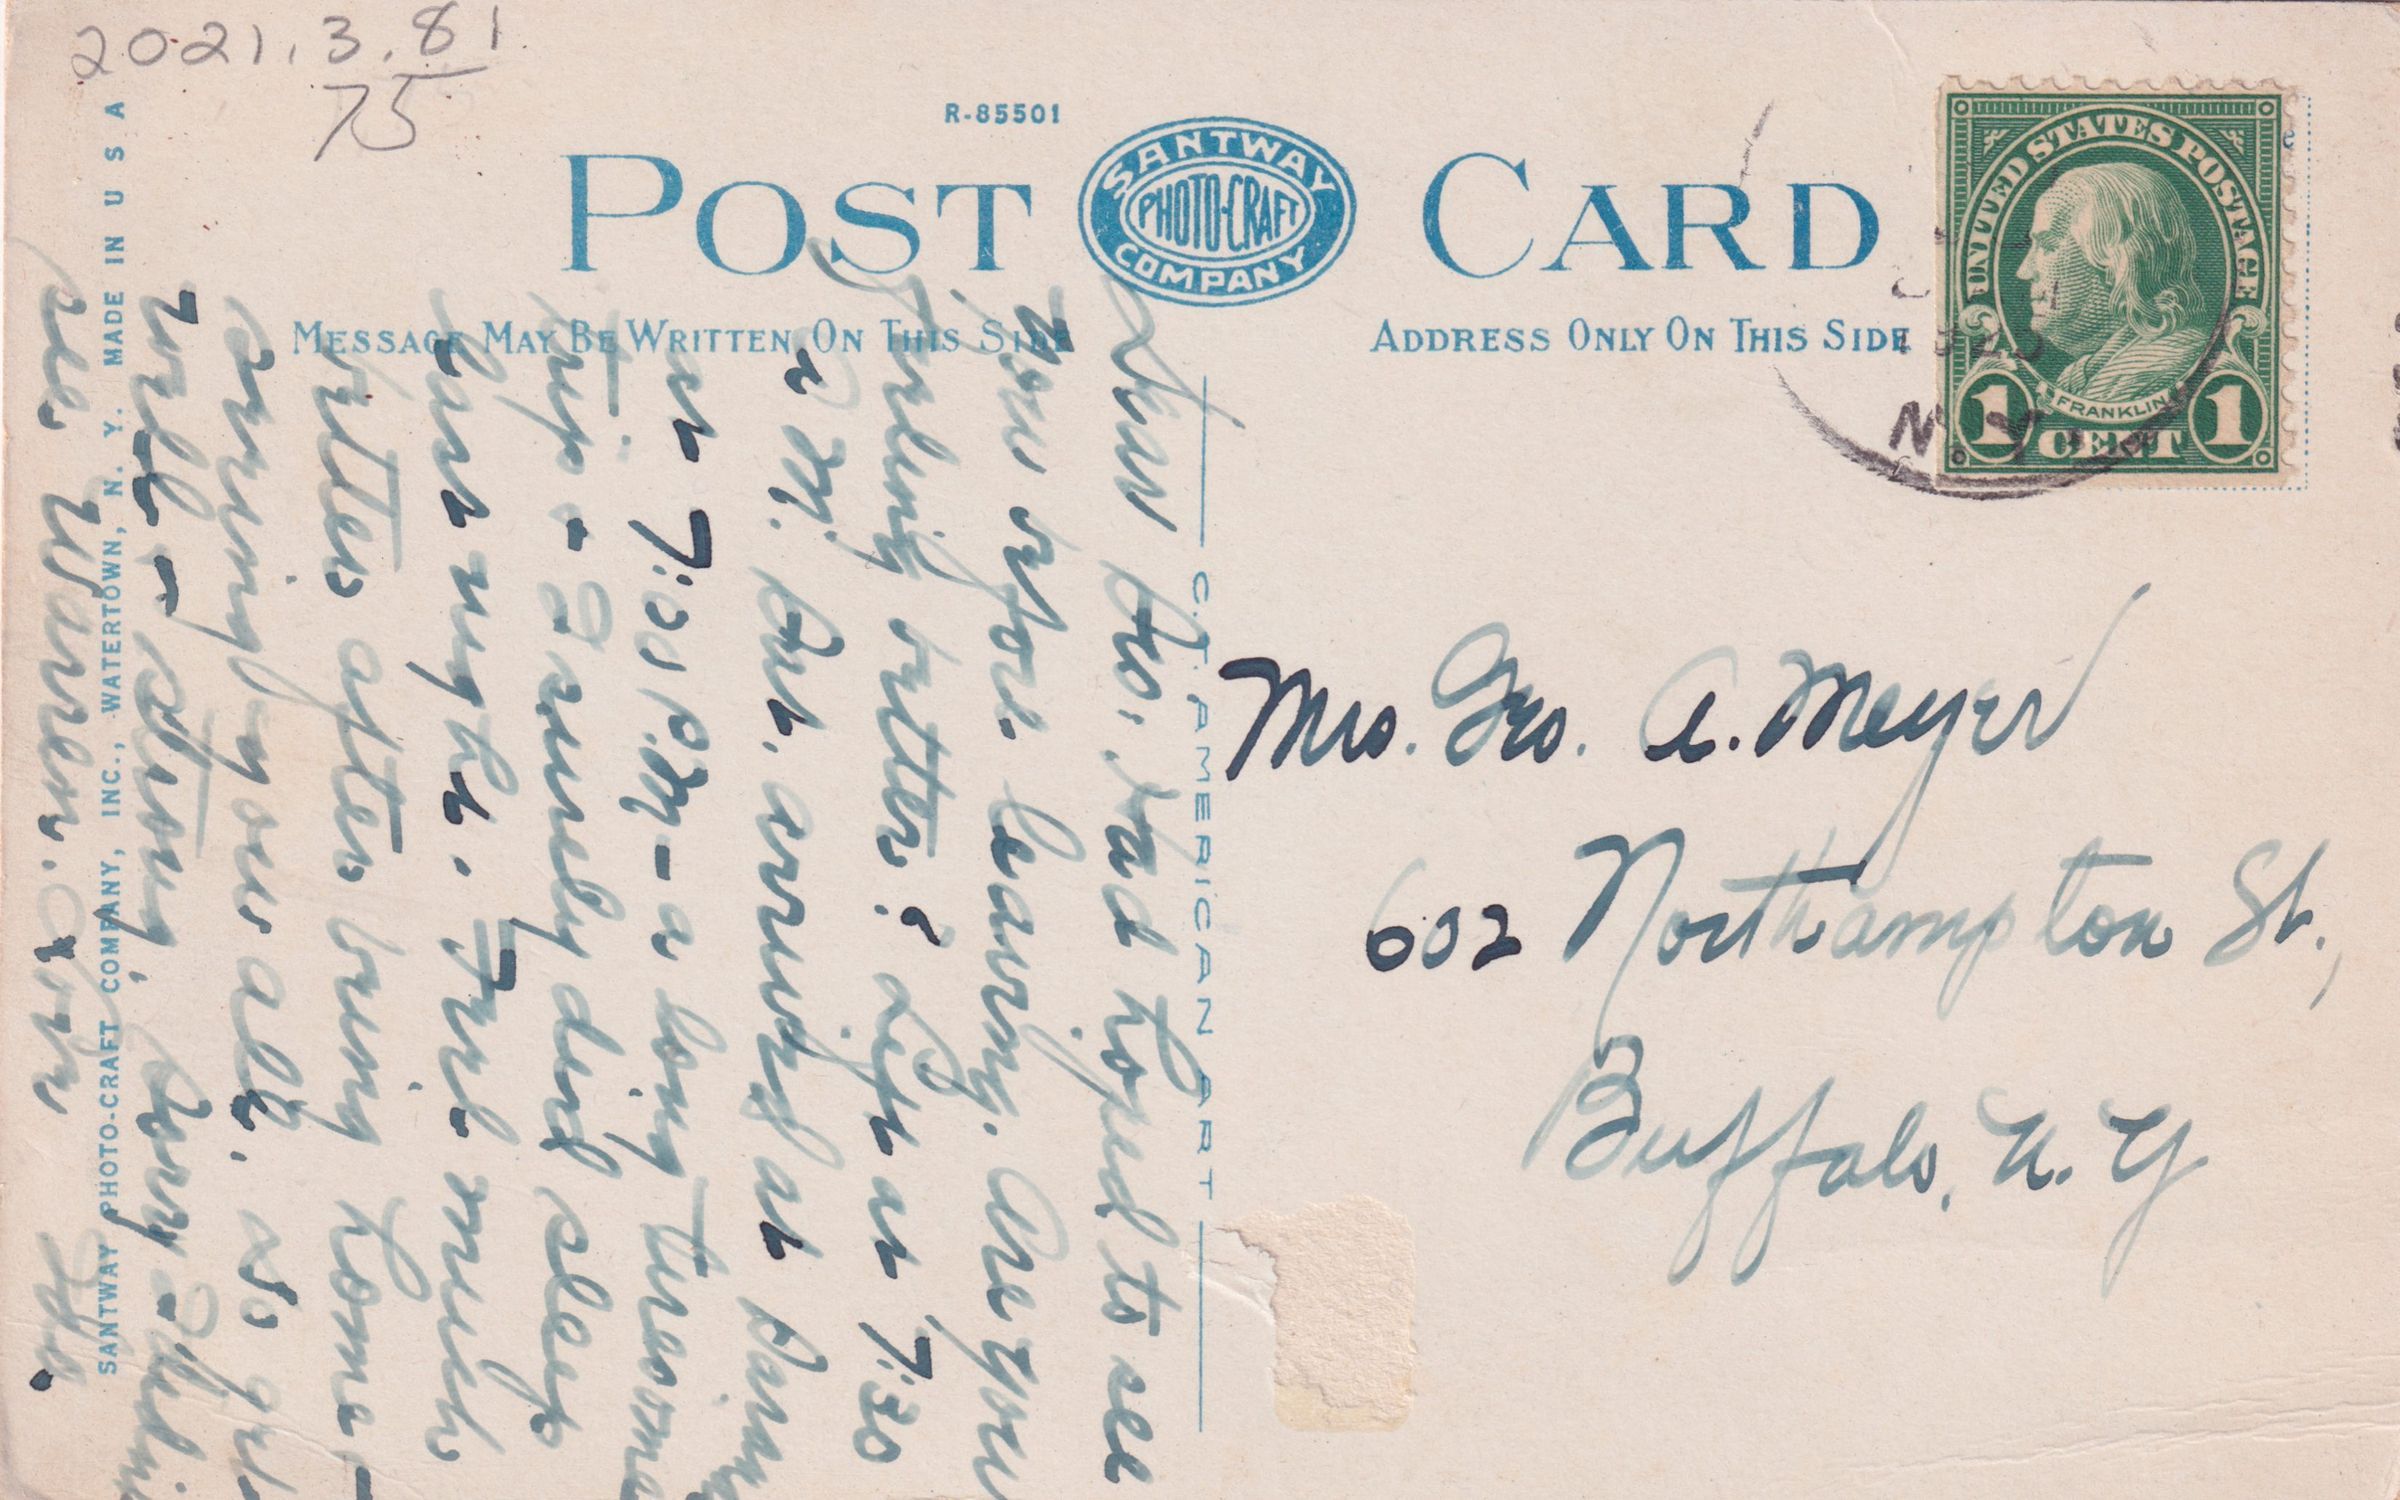 2021.3.81
75
R-85501
POST CARD
SANTWAY
PHOTO-CRAFT
COMPANY
MESSAGE MAY BE WRITTEN ON THIS SIDE
ADDRESS ONLY ON THIS SIDE
UNITED STATES POSTAGE
FRANKLIN
1 CENT 1
N. Y.
Dear Flo, Had hoped to see
you before leaving. Are you
feeling better? Left at 7:30
a M. Sat. arrived at
at 7:00 P.M - a long tiresome
trip - I surely did sleep
last night. Feel much
better after being home -
seeing you all, so
well - strong,
Mrs. Geo. A. Meyer
602 Northampton St.,
Buffalo, N. Y
C. T. AMERICAN ART
SANTWAY PHOTO-CRAFT COMPANY, INC., WATERTOWN, N. Y. MADE IN U S A